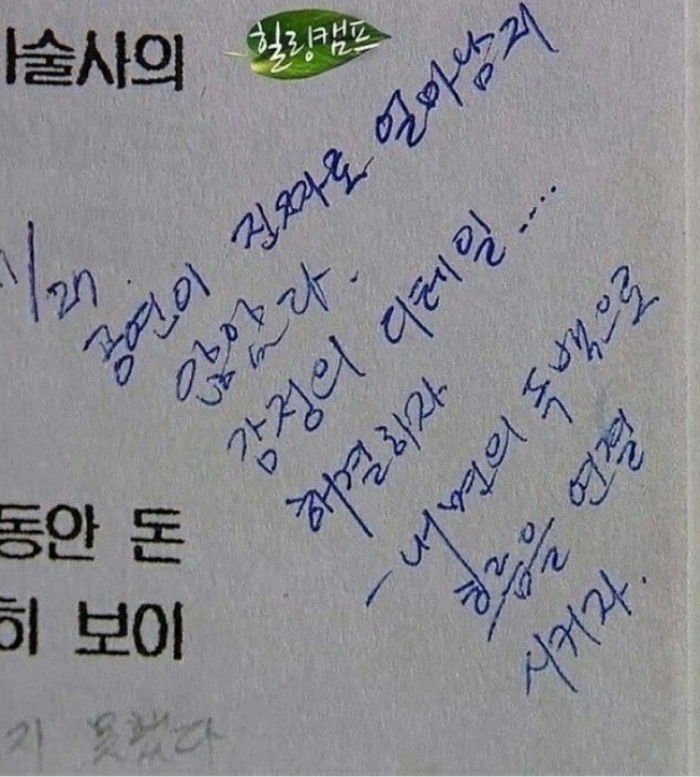 술사의
힐링캠프
1/27. 공연이 진짜로 얼마 남지
않았다.
감정의 디테일....
해결하자
- 내면의 독백으로
흐름을 연결
시키자.
동안 돈
히 보이
지 못했다